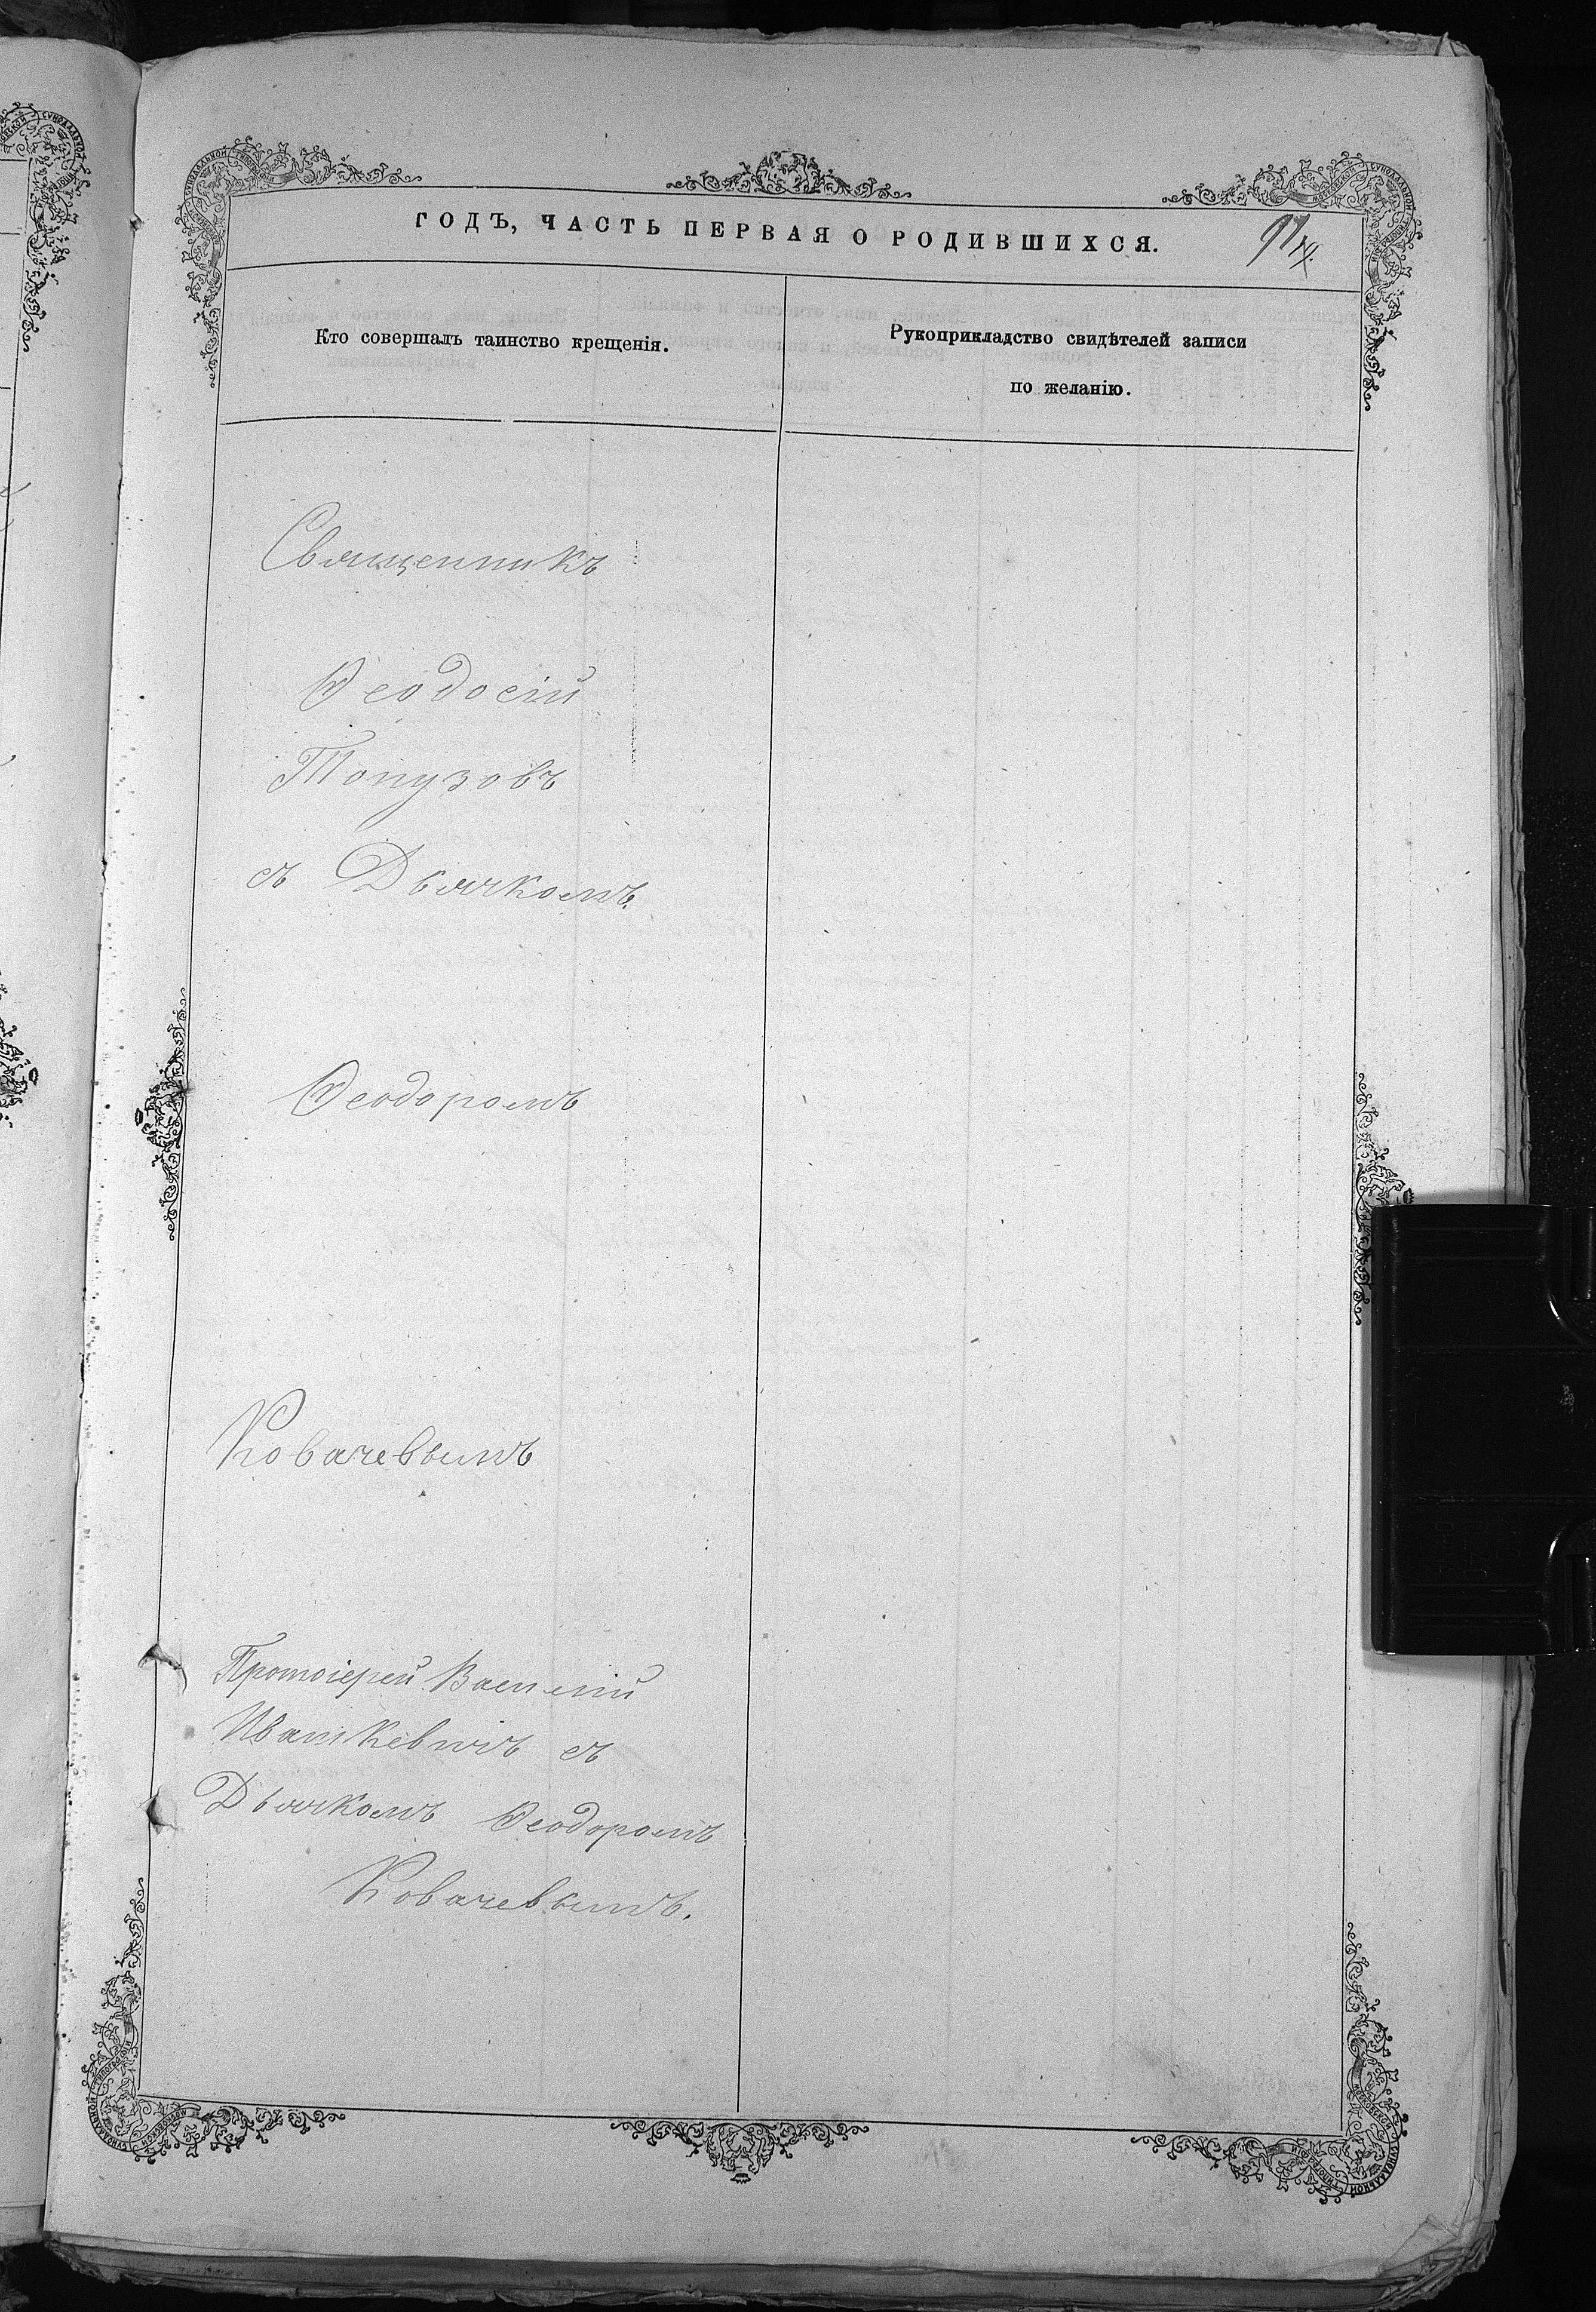 ГОДЪ, ЧАСТЬ ПЕРВАЯ О РОДИВШИХСЯ.
Кто совершалъ таинство крещенія.
Рукоприкладство свидѣтелей записи
по желанію.
Священникъ
Ѳеодосій
Топузовъ
съ Дьячкомъ
Ѳеодоромъ
Ковачевымъ
Протоіерей Василій
Ивашкевичъ съ
Дьячкомъ Ѳеодоромъ
Ковачевымъ.